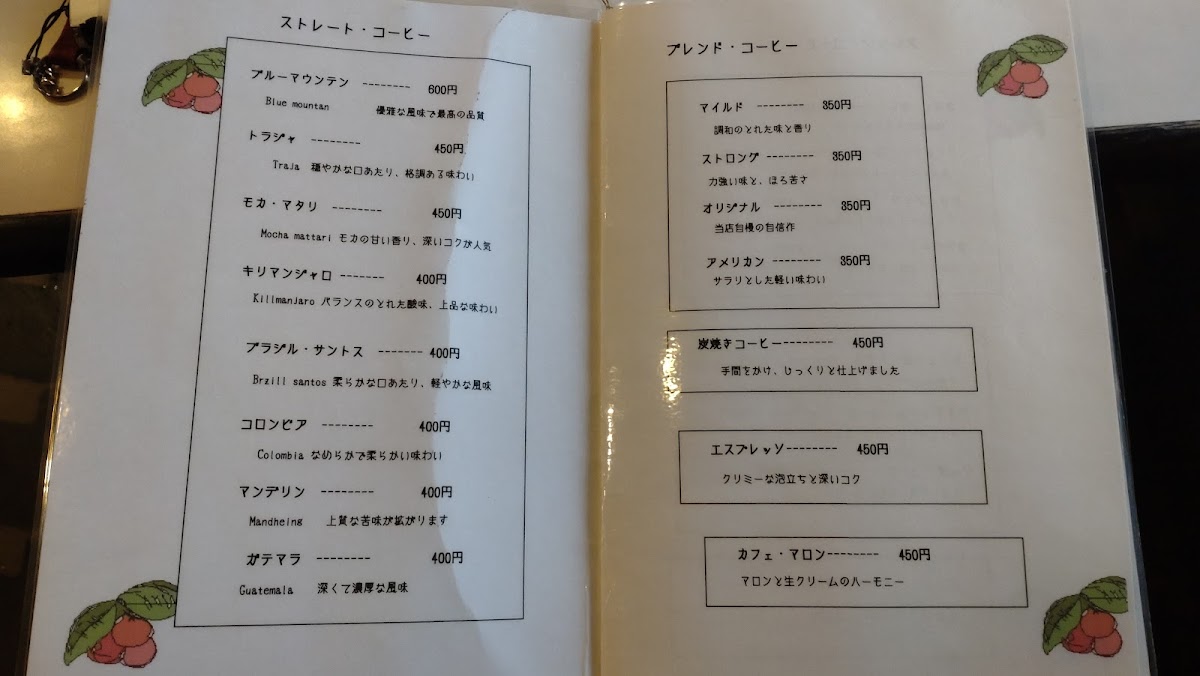 ストレート・コーヒー
ブルーマウンテン -------- 600円
Blue mountan 優雅な風味で最高の品質
トラジャ -------- 450円
Traja 穏やかな口あたり、格調ある味わい
モカ・マタリ -------- 450円
Mocha mattari モカの甘い香り、深いコクが人気
キリマンジャロ ------- 400円
Killmanjaro バランスのとれた酸味、上品な味わい
ブラジル・サントス ------- 400円
Brzill santos 柔らかな口あたり、軽やかな風味
コロンビア -------- 400円
Colombia なめらかで柔らかい味わい
マンデリン -------- 400円
Mandheing 上質な苦味が拡がります
ガテマラ -------- 400円
Guatemala 深くて濃厚な風味
ブレンド・コーヒー
マイルド -------- 350円
調和のとれた味と香り
ストロング -------- 350円
力強い味と、ほろ苦さ
オリジナル -------- 350円
当店自慢の自信作
アメリカン -------- 350円
サラリとした軽い味わい
炭焼きコーヒー-------- 450円
手間をかけ、じっくりと仕上げました
エスプレッソ-------- 450円
クリミーな泡立ちと深いコク
カフェ・マロン-------- 450円
マロンと生クリームのハーモニー